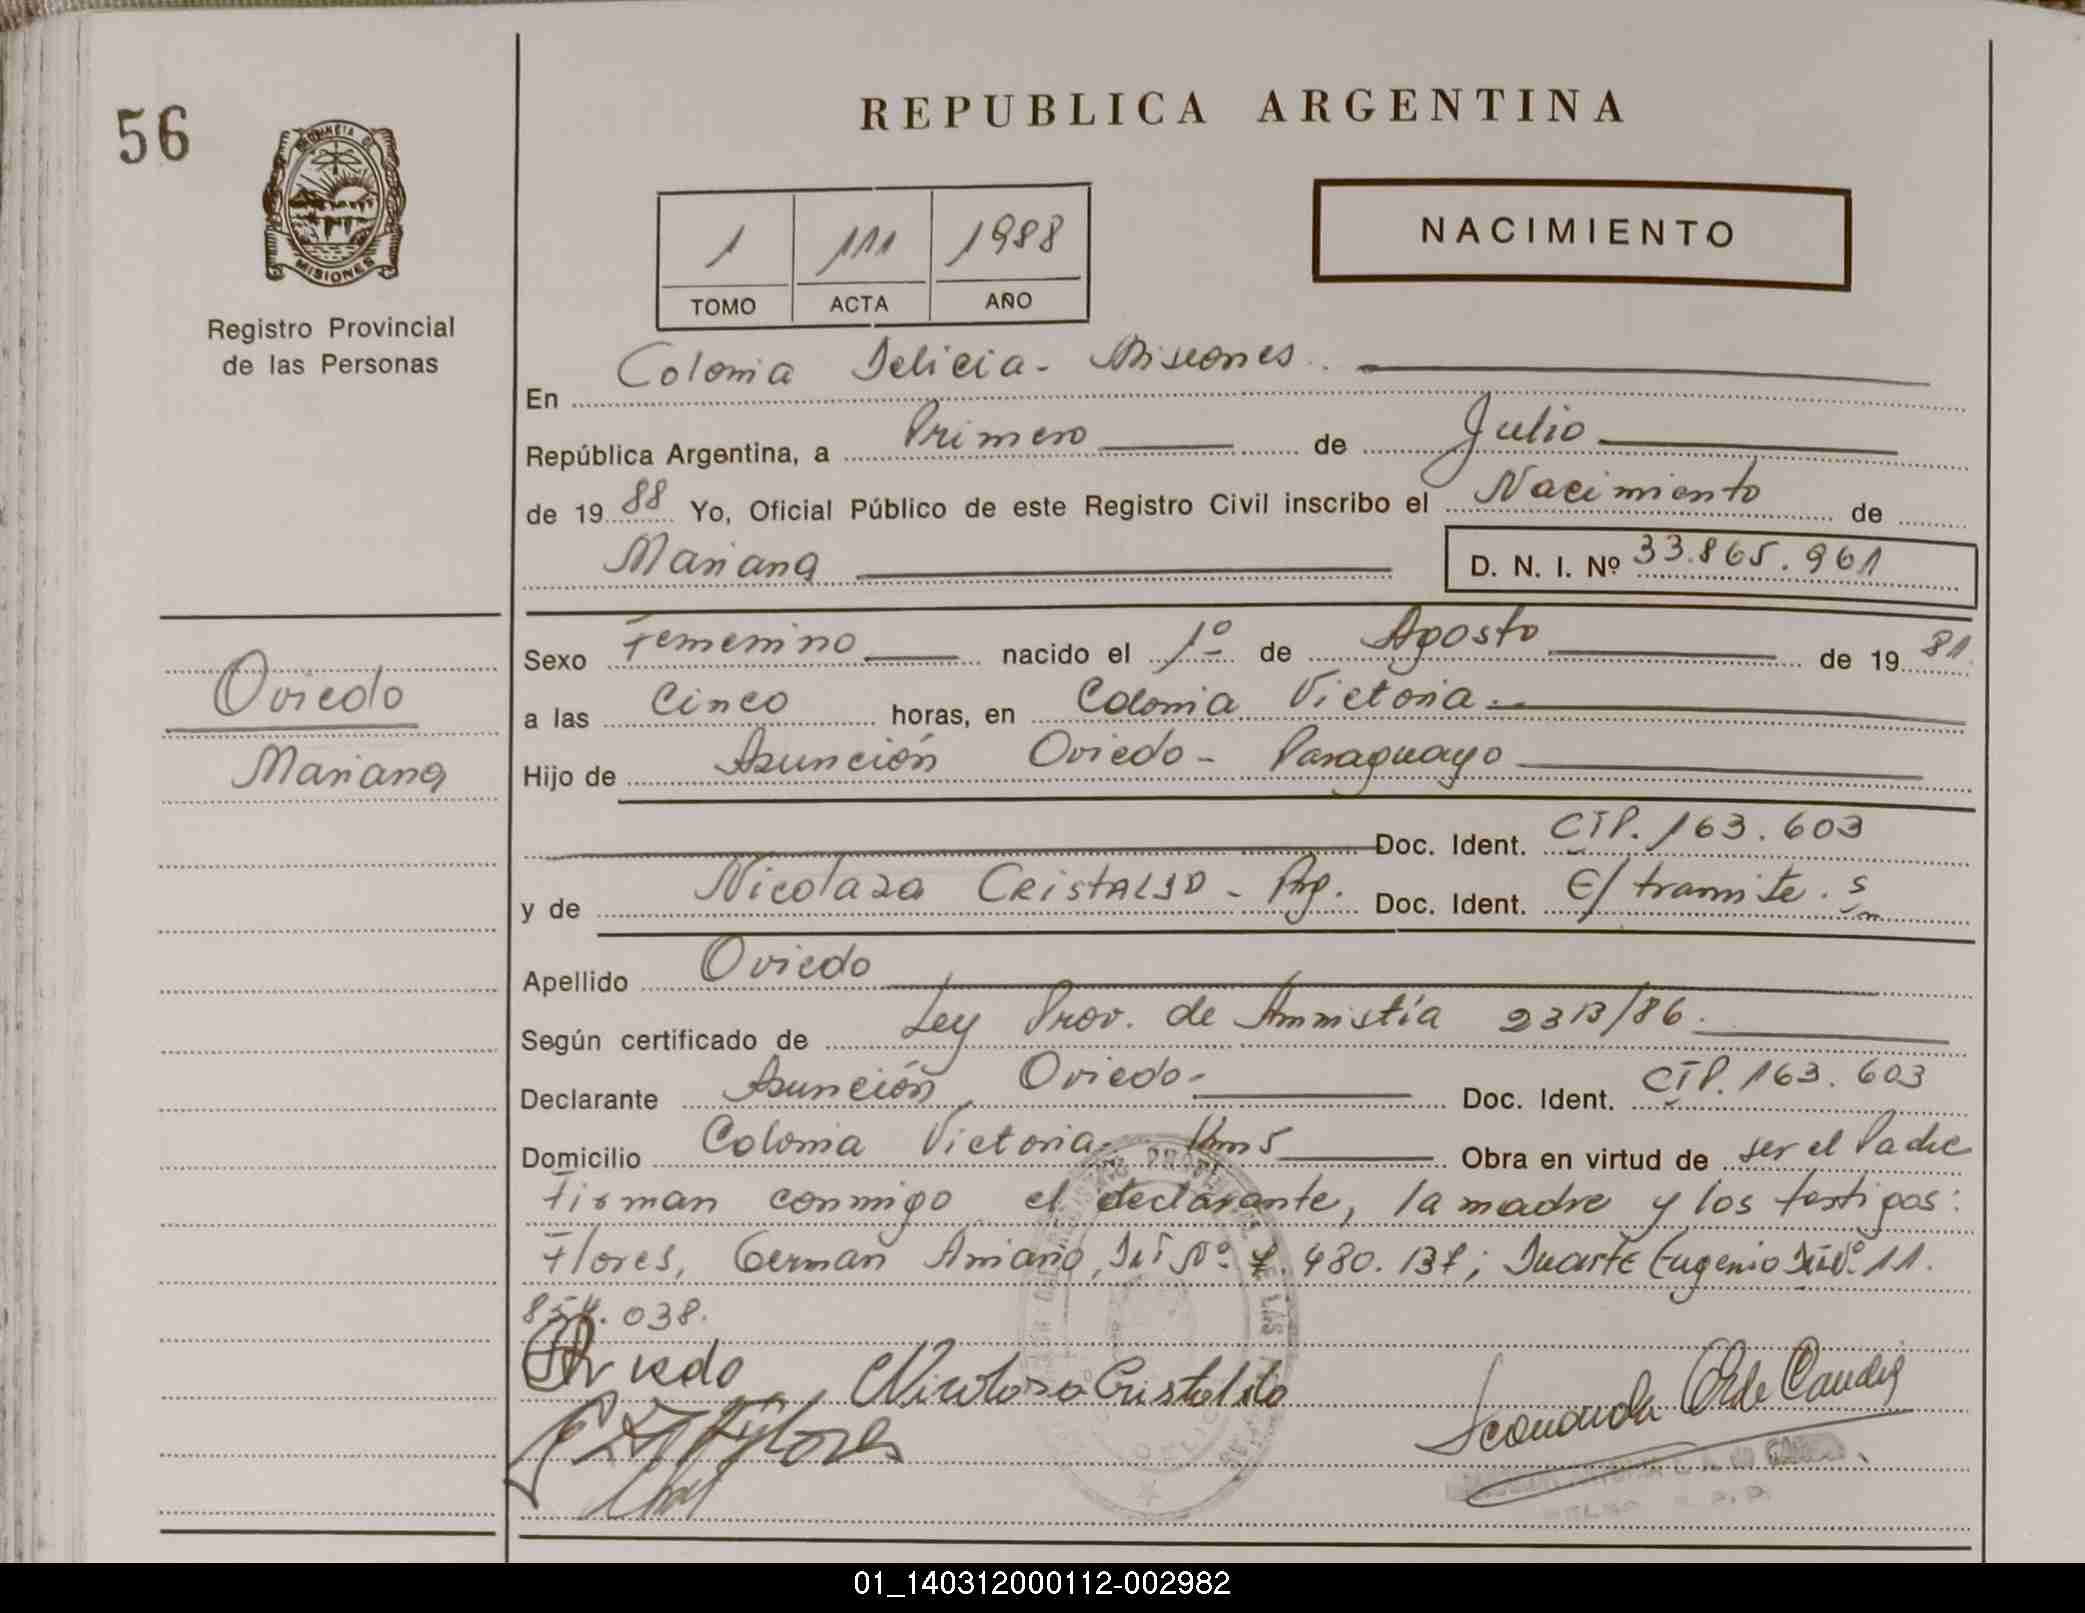 56
REPUBLICA ARGENTINA
NACIMIENTO
1 111 1988
TOMO ACTA AÑO
MISIONES
Registro Provincial
de las Personas
En Colonia Delicia - Misiones.
República Argentina, a Primero de Julio
de 19 88 Yo, Oficial Público de este Registro Civil inscribo el Nacimiento de
Mariana D. N. I. Nº 33.865.961
Sexo Femenino nacido el 1º de Agosto de 19 81
Oviedo
a las Cinco horas, en Colonia Victoria.
Mariana
Hijo de Asunción Oviedo - Paraguayo
Doc. Ident. CIP. 163.603
y de Nicolaza CRISTALDO - Pg. Doc. Ident. E/ tramite. s
Apellido Oviedo
Según certificado de Ley Prov. de Amnistía 2313/86.
Declarante Asunción Oviedo - Doc. Ident. CIP. 163.603
Domicilio Colonia Victoria Km 5 Obra en virtud de ser el Padre
Firman conmigo el declarante, la madre y los testigos:
Flores, German Aniano, DNI Nº 7.480.137; Duarte Eugenio DNI Nº 11.
854.038.
Oviedo Nicolasa Cristaldo
Flores
01_140312000112-002982